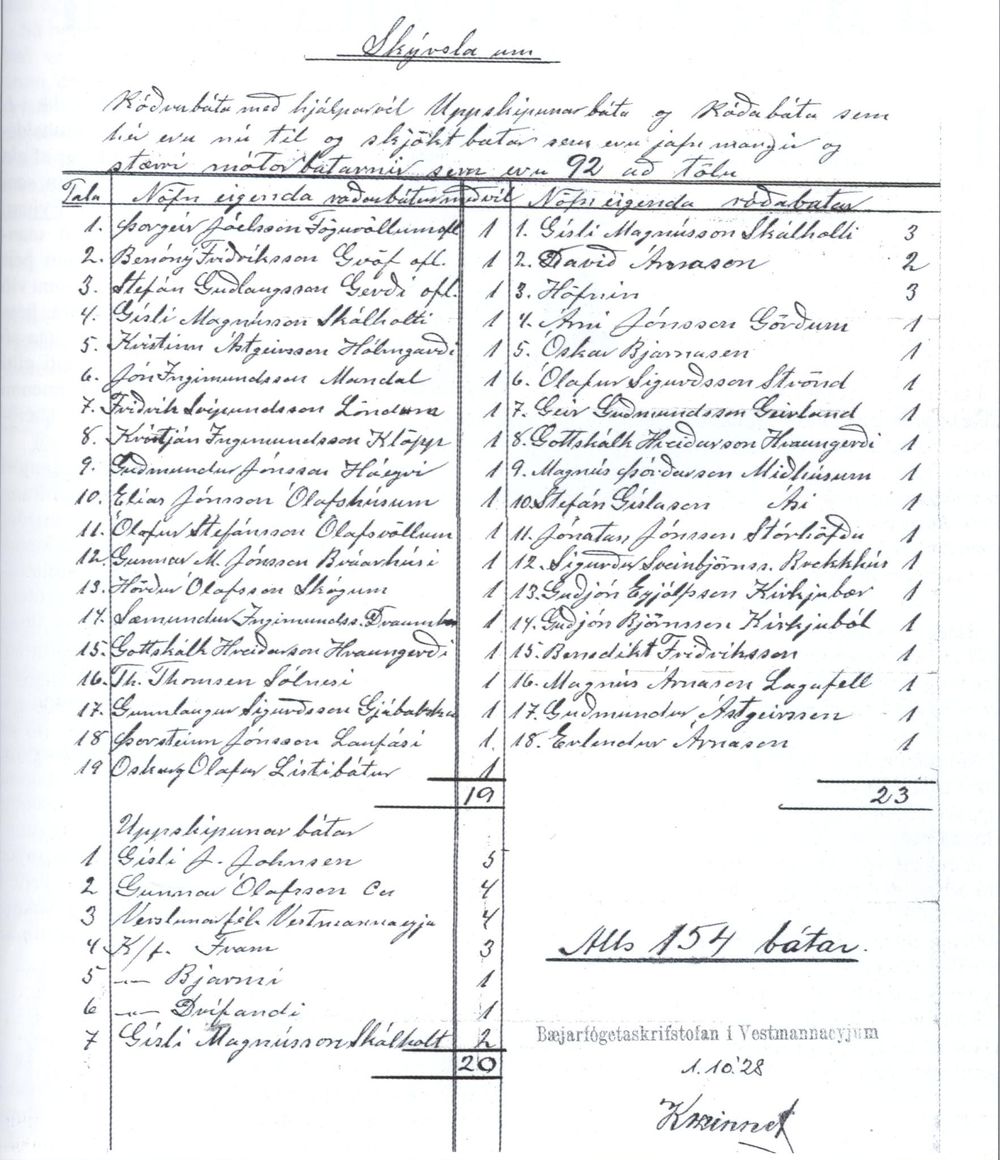 Skýrsla um
Róðrarbáta með hjálparvél Uppskipunarbáta og Róðabáta sem
hér eru nú til og skjökt batar sem eru jafn margir og
stærri mótorbátarnir sem eru 92 að tölu
Tala Nöfn eigenda róðarbátur með vél
1. Þorgeir Jóelsson Fögruvöllum ofl 1
2. Benóný Friðriksson Gröf ofl. 1
3. Stefán Guðlaugsson Gerði ofl. 1
4. Gísli Magnússon Skálholti 1
5. Kristinn Ástgeirsson Hólmgarði 1
6. Jón Ingimundsson Mandal 1
7. Friðrik Svipmundsson Löndum 1
8. Kristján Ingimundsson Klöpp 1
9. Guðmundur Jónsson Háeyri 1
10. Elías Jónsson Ólafshúsum 1
11. Ólafur Stefánsson Ólafsvöllum 1
12. Gunnar M. Jónsson Brúarhúsi 1
13. Hörður Olafsson Skógum 1
14. Sæmundur Ingimundss. 1
15. Gottskálk Hreiðarson Hraungerði 1
16. Th. Thomsen Sólnesi 1
17. Gunnlaugur Sigurðsson Gjábakka 1
18 Þorsteinn Jónsson Laufási 1.
19 Oskar og Olafur Listibátur 1
19
Uppskipunar bátar
1 Gísli J. Johnsen 5
2 Gunnar Ólafsson Co 4
3 Verslunarfél. Vestmannaeyja 4
4 K/f. Fram 3
5 -"- Bjarmi 1
6 -"- Drífandi 1
7 Gísli Magnússon Skálholt 2
20
Nöfn eigenda róðabátar
1. Gísli Magnússon Skálholti 3
2. Davið Árnason 2
3. Höfnin 3
4. Árni Jónsson Görðum 1
5. Óskar Bjarnasen 1
6. Ólafur Sigurðsson Strönd 1
7. Geir Guðmundsson Geirland 1
8. Gottskálk Hreiðarson Hraungerði 1
9. Magnús Þórðarson Miðhúsum 1
10. Stefán Gíslason Ási 1
11. Jónatan Jónsson Stórhöfða 1
12. Sigurður Sveinbjörnss. Brekkhús 1
13. Guðjón Eyjólfsson Kirkjubær 1
14. Guðjón Björnsson Kirkjuból 1
15. Benedikt Friðriksson 1
16. Magnús Árnason Lagafell 1
17. Guðmundur Ástgeirssen 1
18. Erlendur Árnason 1
23
Alls 154 bátar.
Bæjarfógetaskrifstofan í Vestmannaeyjum
1.10.'28